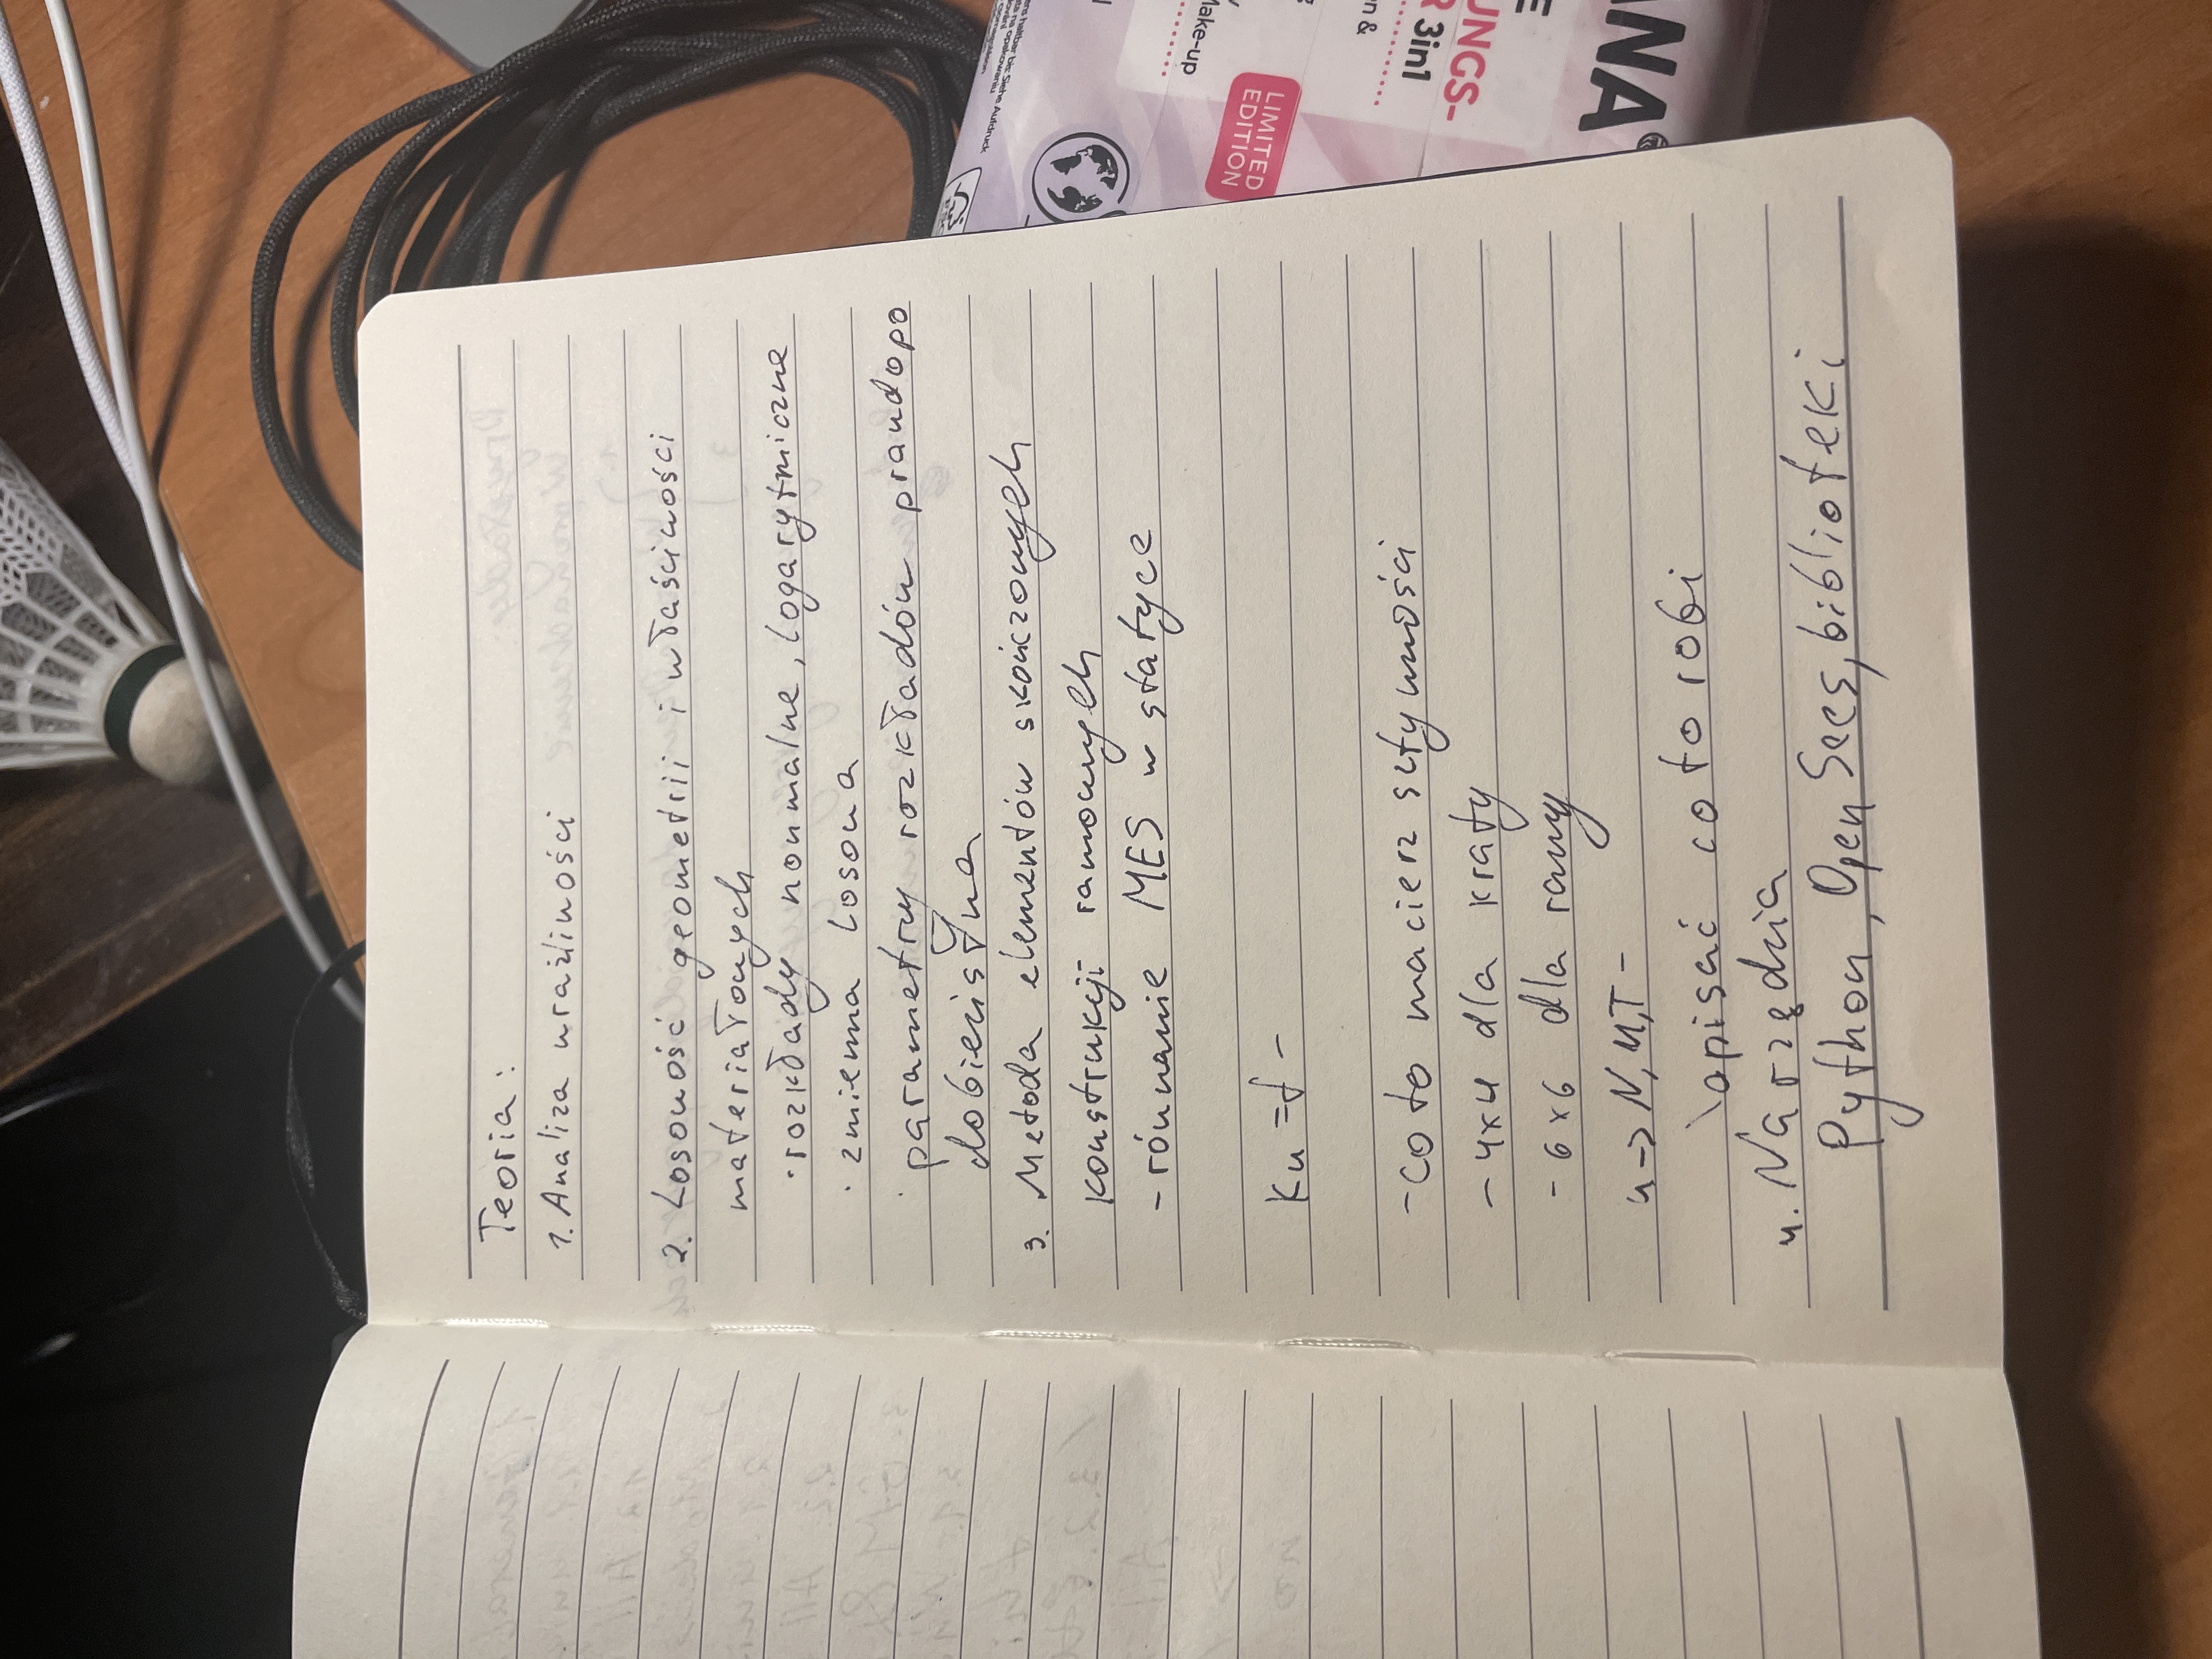 Teoria:
1. Analiza wrażliwości
2. Losowość geometrii i właściwości
materiałowych
· rozkłady normalne, logarytmiczne
· zmienna losowa
· parametry rozkładów prawdopo
dobieństwa
3. Metoda elementów skończonych
konstrukcji ramowych
- równanie MES w statyce
Ku = f -
- co to macierz sztywności
- 4x4 dla kraty
- 6x6 dla ramy
u -> N, M, T -
\ opisać co to robi
4. Narzędzia
Python, OpenSees, biblioteki
LIMITED
EDITION
Make-up
3in1
UNGS-